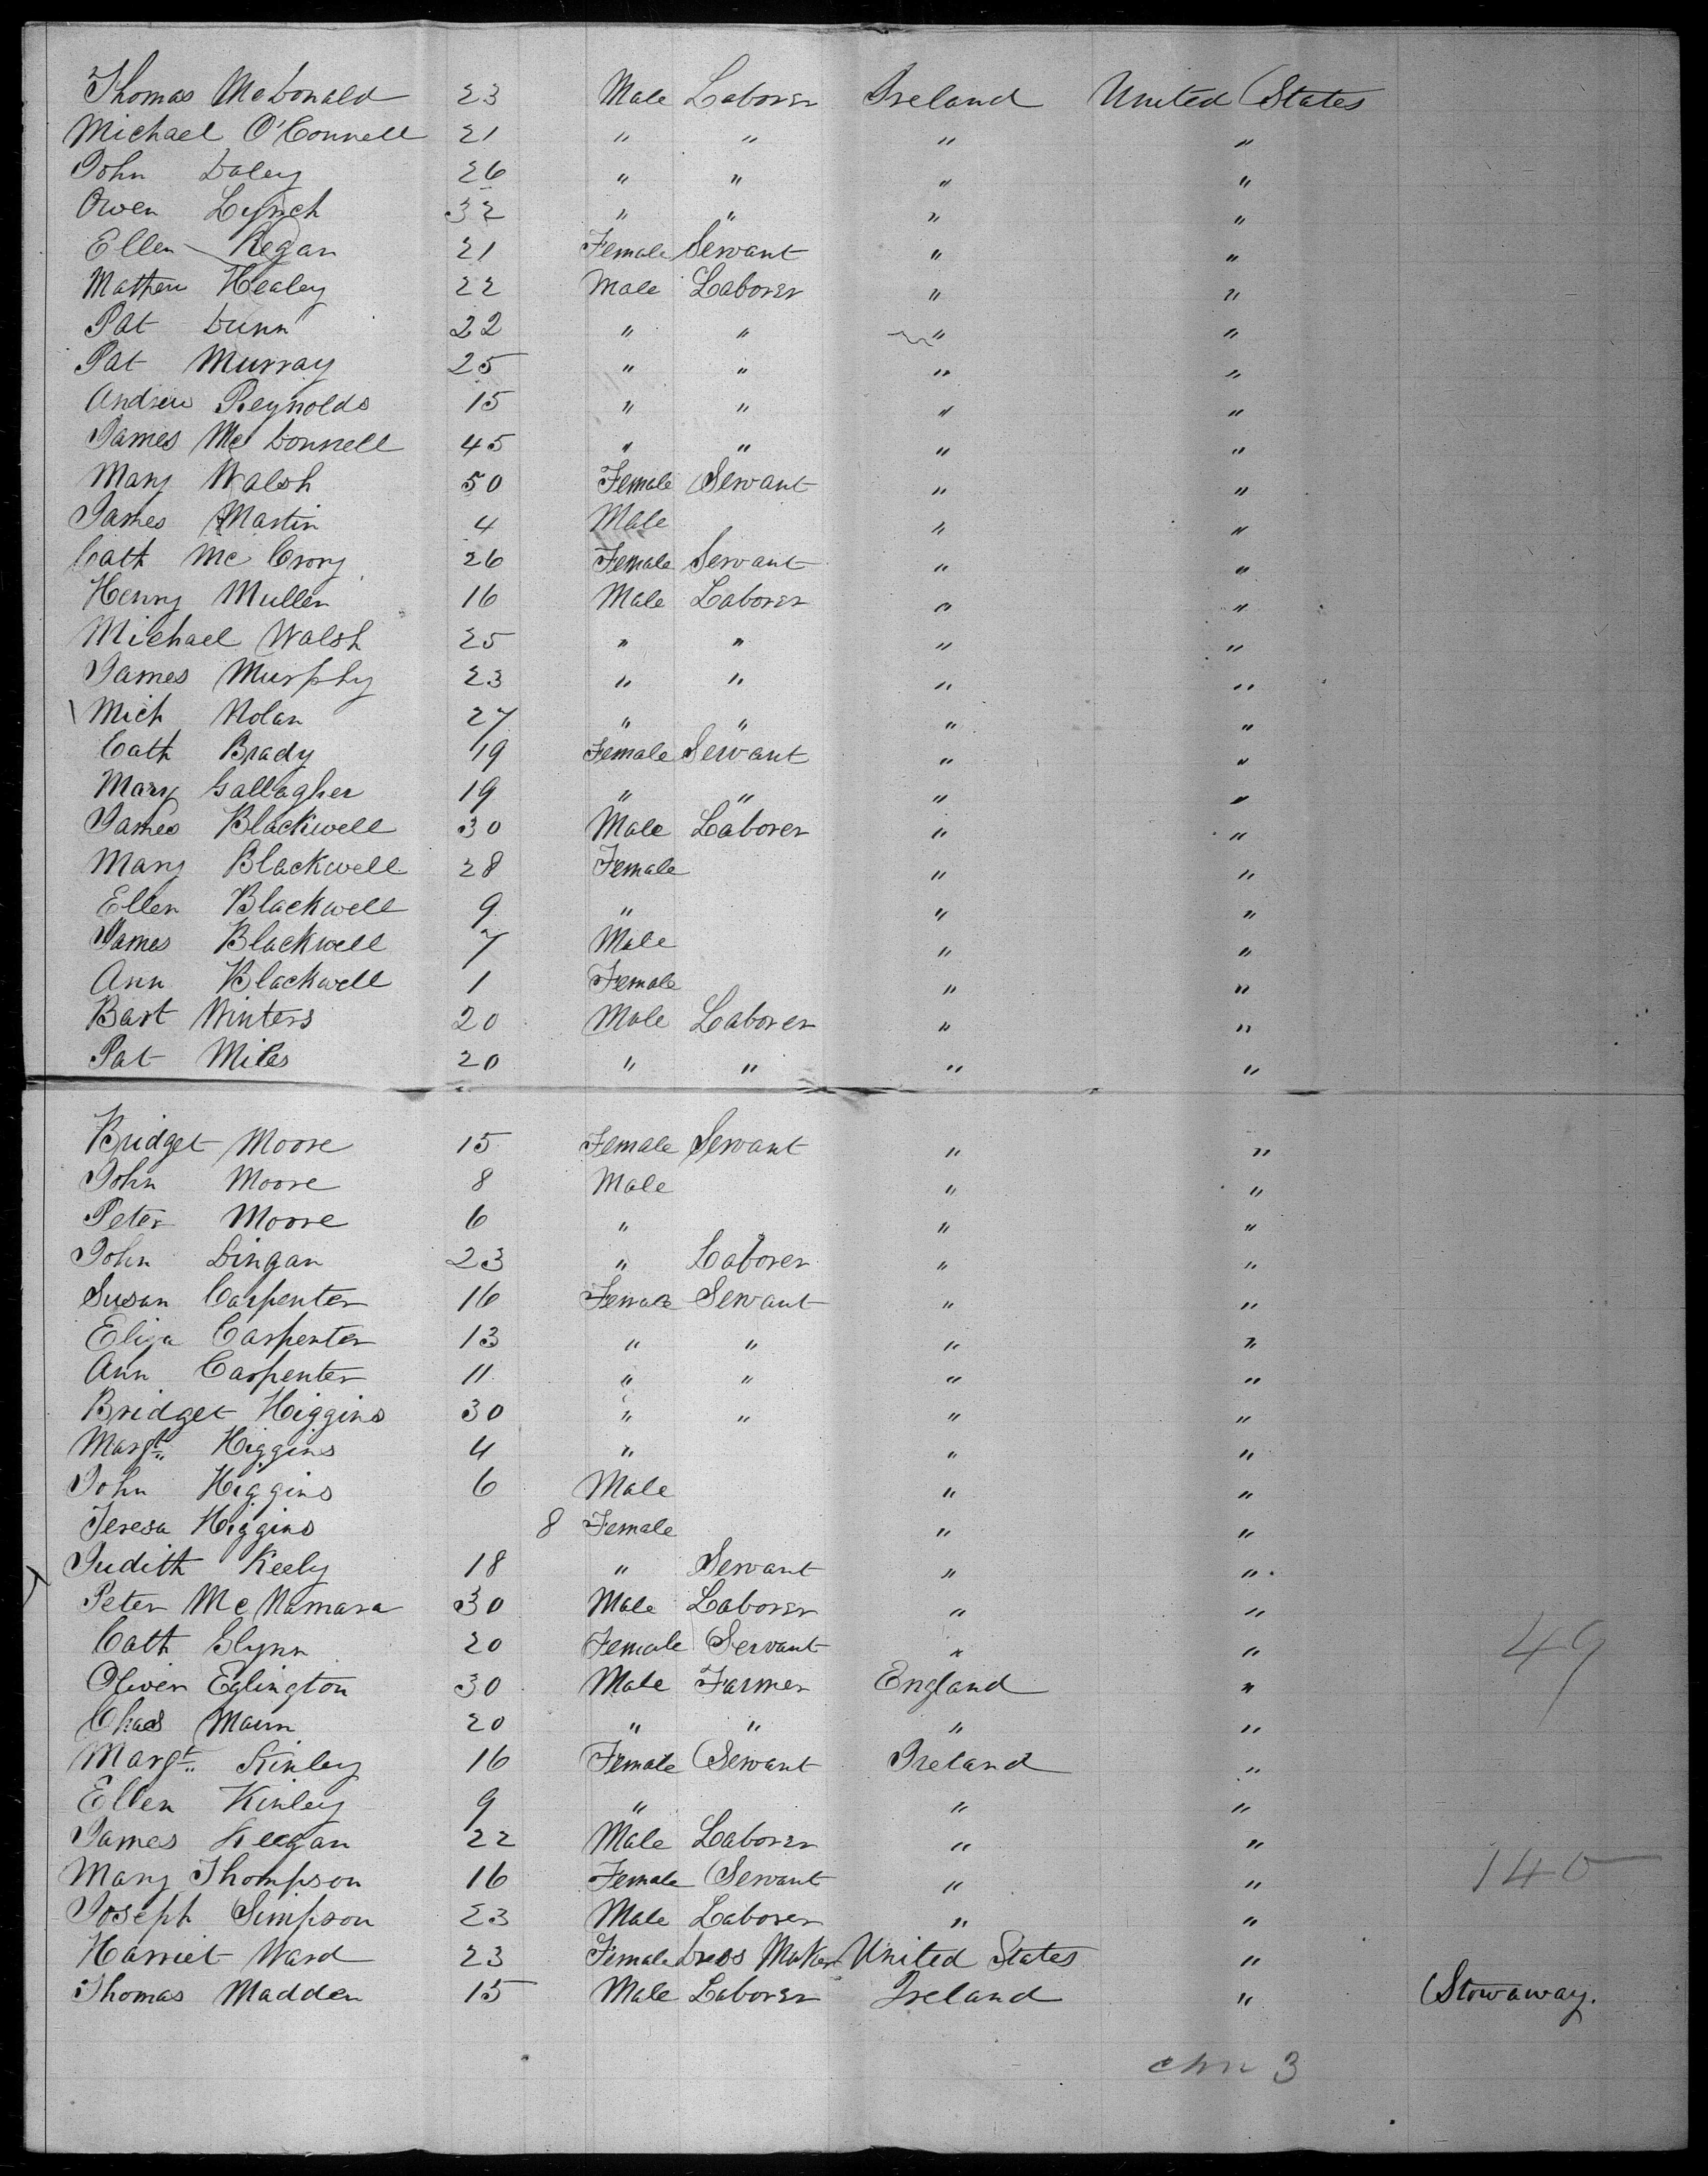 Thomas McDonald 23 Male Laborer Ireland United States
Michael O'Connell 21 " " " "
John Daley 26 " " " "
Owen Lynch 32 " " " "
Ellen Regan 21 Female Servant " "
Mathew Healey 22 Male Laborer " "
Pat Dunn 22 " " " "
Pat Murray 25 " " " "
Andrew Reynolds 15 " " " "
James McDonnell 45 " " " "
Mary Walsh 50 Female Servant " "
James Martin 4 Male " "
Cath McCrory 26 Female Servant " "
Henry Mullen 16 Male Laborer " "
Michael Walsh 25 " " " "
James Murphy 23 " " " "
Mich Nolan 27 " " " "
Cath Brady 19 Female Servant " "
Mary Gallagher 19 " " " "
James Blackwell 30 Male Laborer " "
Mary Blackwell 28 Female " "
Ellen Blackwell 9 " " "
James Blackwell 7 Male " "
Ann Blackwell 1 Female " "
Bart Winters 20 Male Laborer " "
Pat Miles 20 " " " "
Bridget Moore 15 Female Servant " "
John Moore 8 Male " "
Peter Moore 6 " " "
John Dingan 23 " Laborer " "
Susan Carpenter 16 Female Servant " "
Eliza Carpenter 13 " " " "
Ann Carpenter 11 " " " "
Bridget Higgins 30 " " " "
Margt Higgins 4 " " "
John Higgins 6 Male " "
Teresa Higgins 8 Female " "
Judith Keely 18 " Servant " "
Peter McNamara 30 Male Laborer " "
Cath Glynn 20 Female Servant " " 49
Oliver Eglington 30 Male Farmer England "
Chas Mann 20 " " " "
Margt Kinley 16 Female Servant Ireland "
Ellen Kinley 9 " " "
James Keegan 22 Male Laborer " "
Mary Thompson 16 Female Servant " " 140
Joseph Simpson 23 Male Laborer " "
Harriet Ward 23 Female Dress Maker United States "
Thomas Madden 15 Male Laborer Ireland " Stowaway.
3